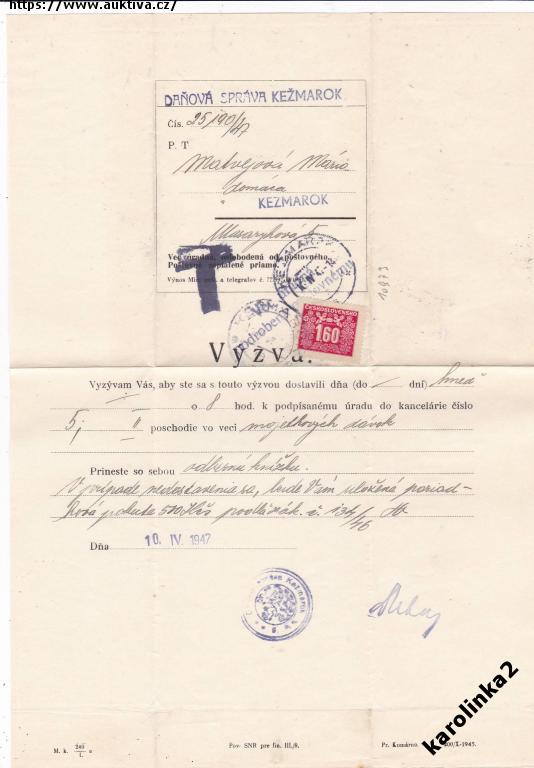 https://www.auktiva.cz/
DAŇOVÁ SPRÁVA KEŽMAROK
Čís. 25190/47
P. T
Matvejová Mária
domáca
KEZMAROK
Masarykova 5
Vec úradná, oslobodená od poštovného.
Poštovné zaplatené priamo.
Výnos Min. pôšt a telegrafov č.
T
10973
ČESKOSLOVENSKO
1.60
Výzva.
Vyzývam Vás, aby ste sa s touto výzvou dostavili dňa (do dní) hneď
o 8 hod. k podpísanému úradu do kancelárie číslo
5, II poschodie vo veci majetkových dávok
Prineste so sebou odbernú knižku.
V prípade nedostavenia sa, bude Vám uložená poriad-
ková pokuta 500 Kčs podľa zák. č. 134/46
Dňa 10. IV. 1947
M. k. 240/I. a
Pov. SNR pre fin. III/9.
Pr. Komárno. 00/X-1945.
karolinka2